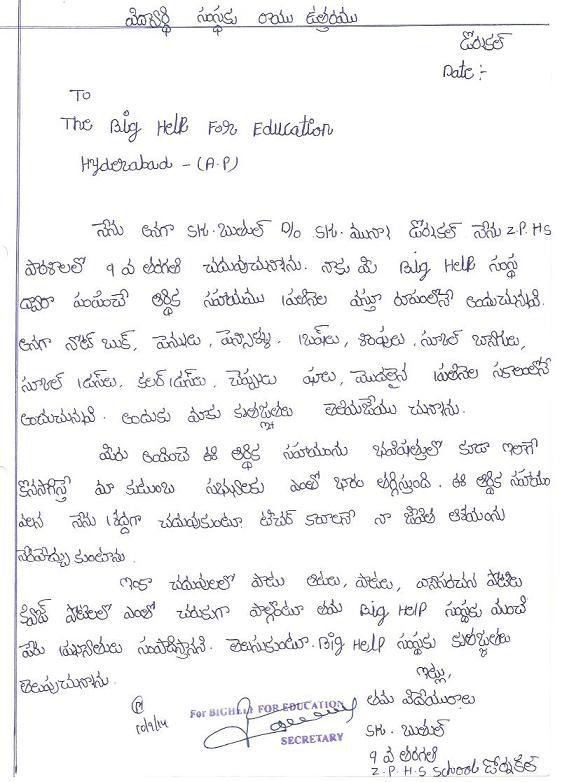 విద్యార్థి సంస్థకు రాయు ఉత్తరము
డోరుకల్
Date :-
To
The Big Help For Education
Hyderabad - (A.P)
నేను అనగా SK. బుతుల్ D/o SK. మునా! డోరుకల్ నేను Z.P.HS
పాఠశాలలో 9 వ తరగతి చదువుచున్నాను. నాకు మీ Big Help సంస్థ
ద్వారా పంపించే ఆర్థిక సహాయము ప్రతినెల వస్తూ రూపంలోనే అందుచున్నవి.
అనగా నోట్ బుక్, పెన్నులు, పెన్సిళ్ళు, బ్రష్‌లు, శాంపులు, స్కూల్ బ్యాగులు,
స్కూల్ డ్రస్‌లు, కలర్ డ్రస్‌లు, చెప్పులు షూలు, మొదలైన ప్రతినెల సకాలంలోనే
అందుచున్నవి. అందుకు మాకు కృతజ్ఞతలు తెలియజేయు చున్నాను.
మీరు అందించే ఈ ఆర్థిక సహాయంను భవిష్యత్తులో కూడా ఇలాగే
కొనసాగిస్తే మా కుటుంబ సభ్యులకు ఎంతో భారం తగ్గిస్తుంది. ఈ ఆర్థిక సహాయం
వలన నేను శ్రద్ధగా చదువుకుంటూ టీచర్ కావాలనే నా జీవిత ఆశయంను
నెరవేర్చు కుంటాను.
ఇంకా చదువులలో పాటు ఆటలు, పాటలు, వ్యాసరచన పోటీలు
క్విజ్ పోటీలలో ఎంతో చురుకుగా పాల్గొంటూ తమ Big Help సంస్థకు మంచి
పేరు ప్రఖ్యాతులు సంపాదిస్తానని. తెలుసుకుంటూ. Big Help సంస్థకు కృతజ్ఞతలు
తెలుపుచున్నాను.
ఇట్లు,
తమ విధేయురాలు
SK. బుతుల్
9 వ తరగతి
Z.P.H.S School డోరుకల్
10/9/14
For BIGHELP FOR EDUCATION
SECRETARY